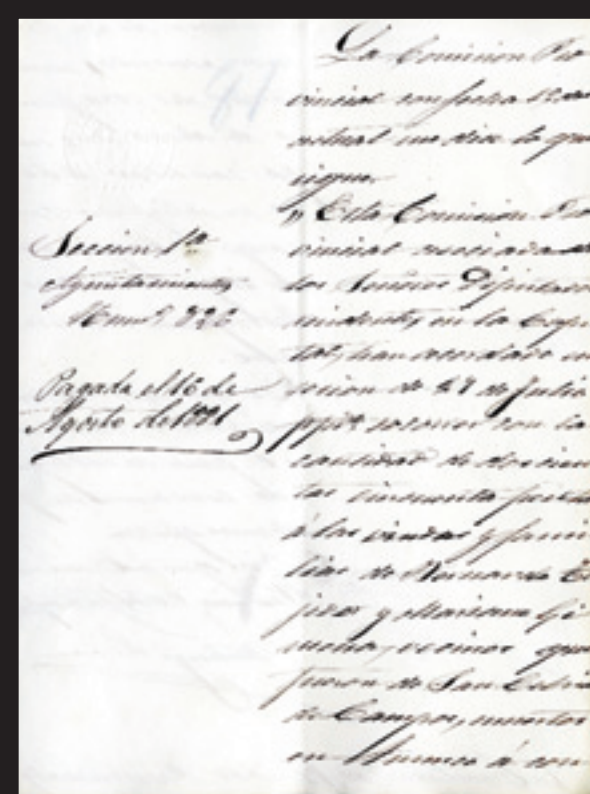 Sección 1ª
Ayuntamientos
Num.º 826
Pagada el 16 de
Agosto de 1881
La Comision Pro
vincial con fecha 12 del
actual me dice lo que
sigue.
" Esta Comision Pro
vincial asociada de
los Señores Diputados
residentes en la Capi
tal, han acordado en
sesion de 27 de Julio
pp.º socorrer con la
cantidad de doscien
tas cincuenta pesetas
á las viudas y fami
lias de
y Mariano Gi
vecinos que
fueron de San Cebrian
de Campos, muertos
en á con